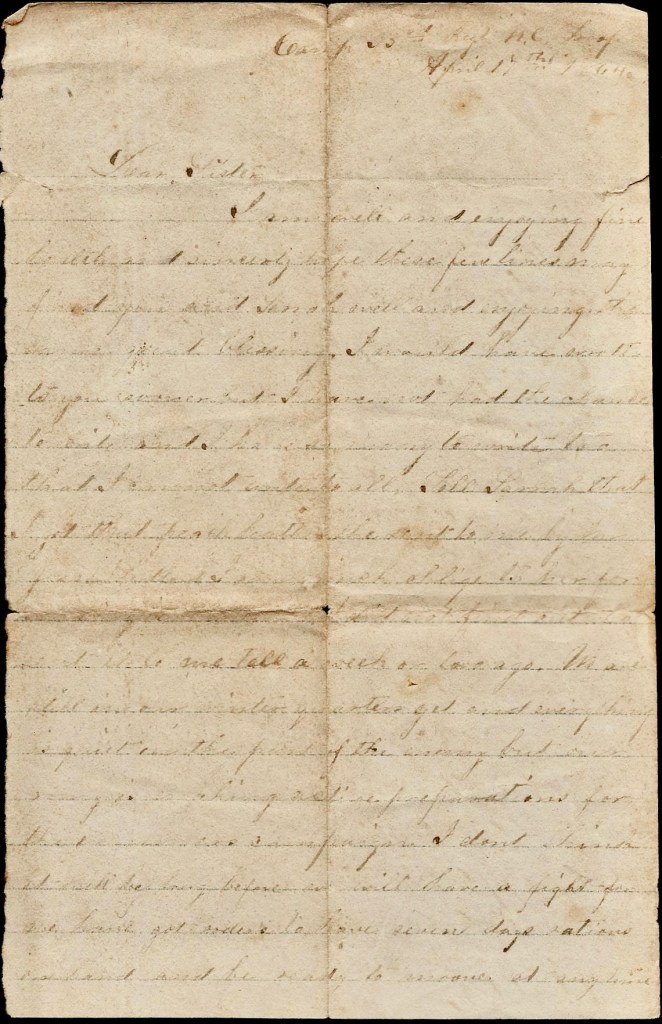 Camp 55th Regt N.C. Troop
April 17th 1864
Dear Sister
I am well and enjoying fine
health and sincerely hope these few lines may
find you and Sarah well and enjoying the
same great blessing. I would have wrote
to you but I have not had the chance
to write and I have so many to write to
that I cannot write to all. Tell Sarah that
I got that peach leather she sent to me by
I am much oblige to her for
it
sent it to me tell a week or two ago. We are
still in our winter quarters yet and everything
is quiet in the front of the enemy but our
army is making active preparations for
the campaign I dont think
it will be long before we will have a fight for
we have got orders to have seven days rations
on hand and be ready to moove at any time